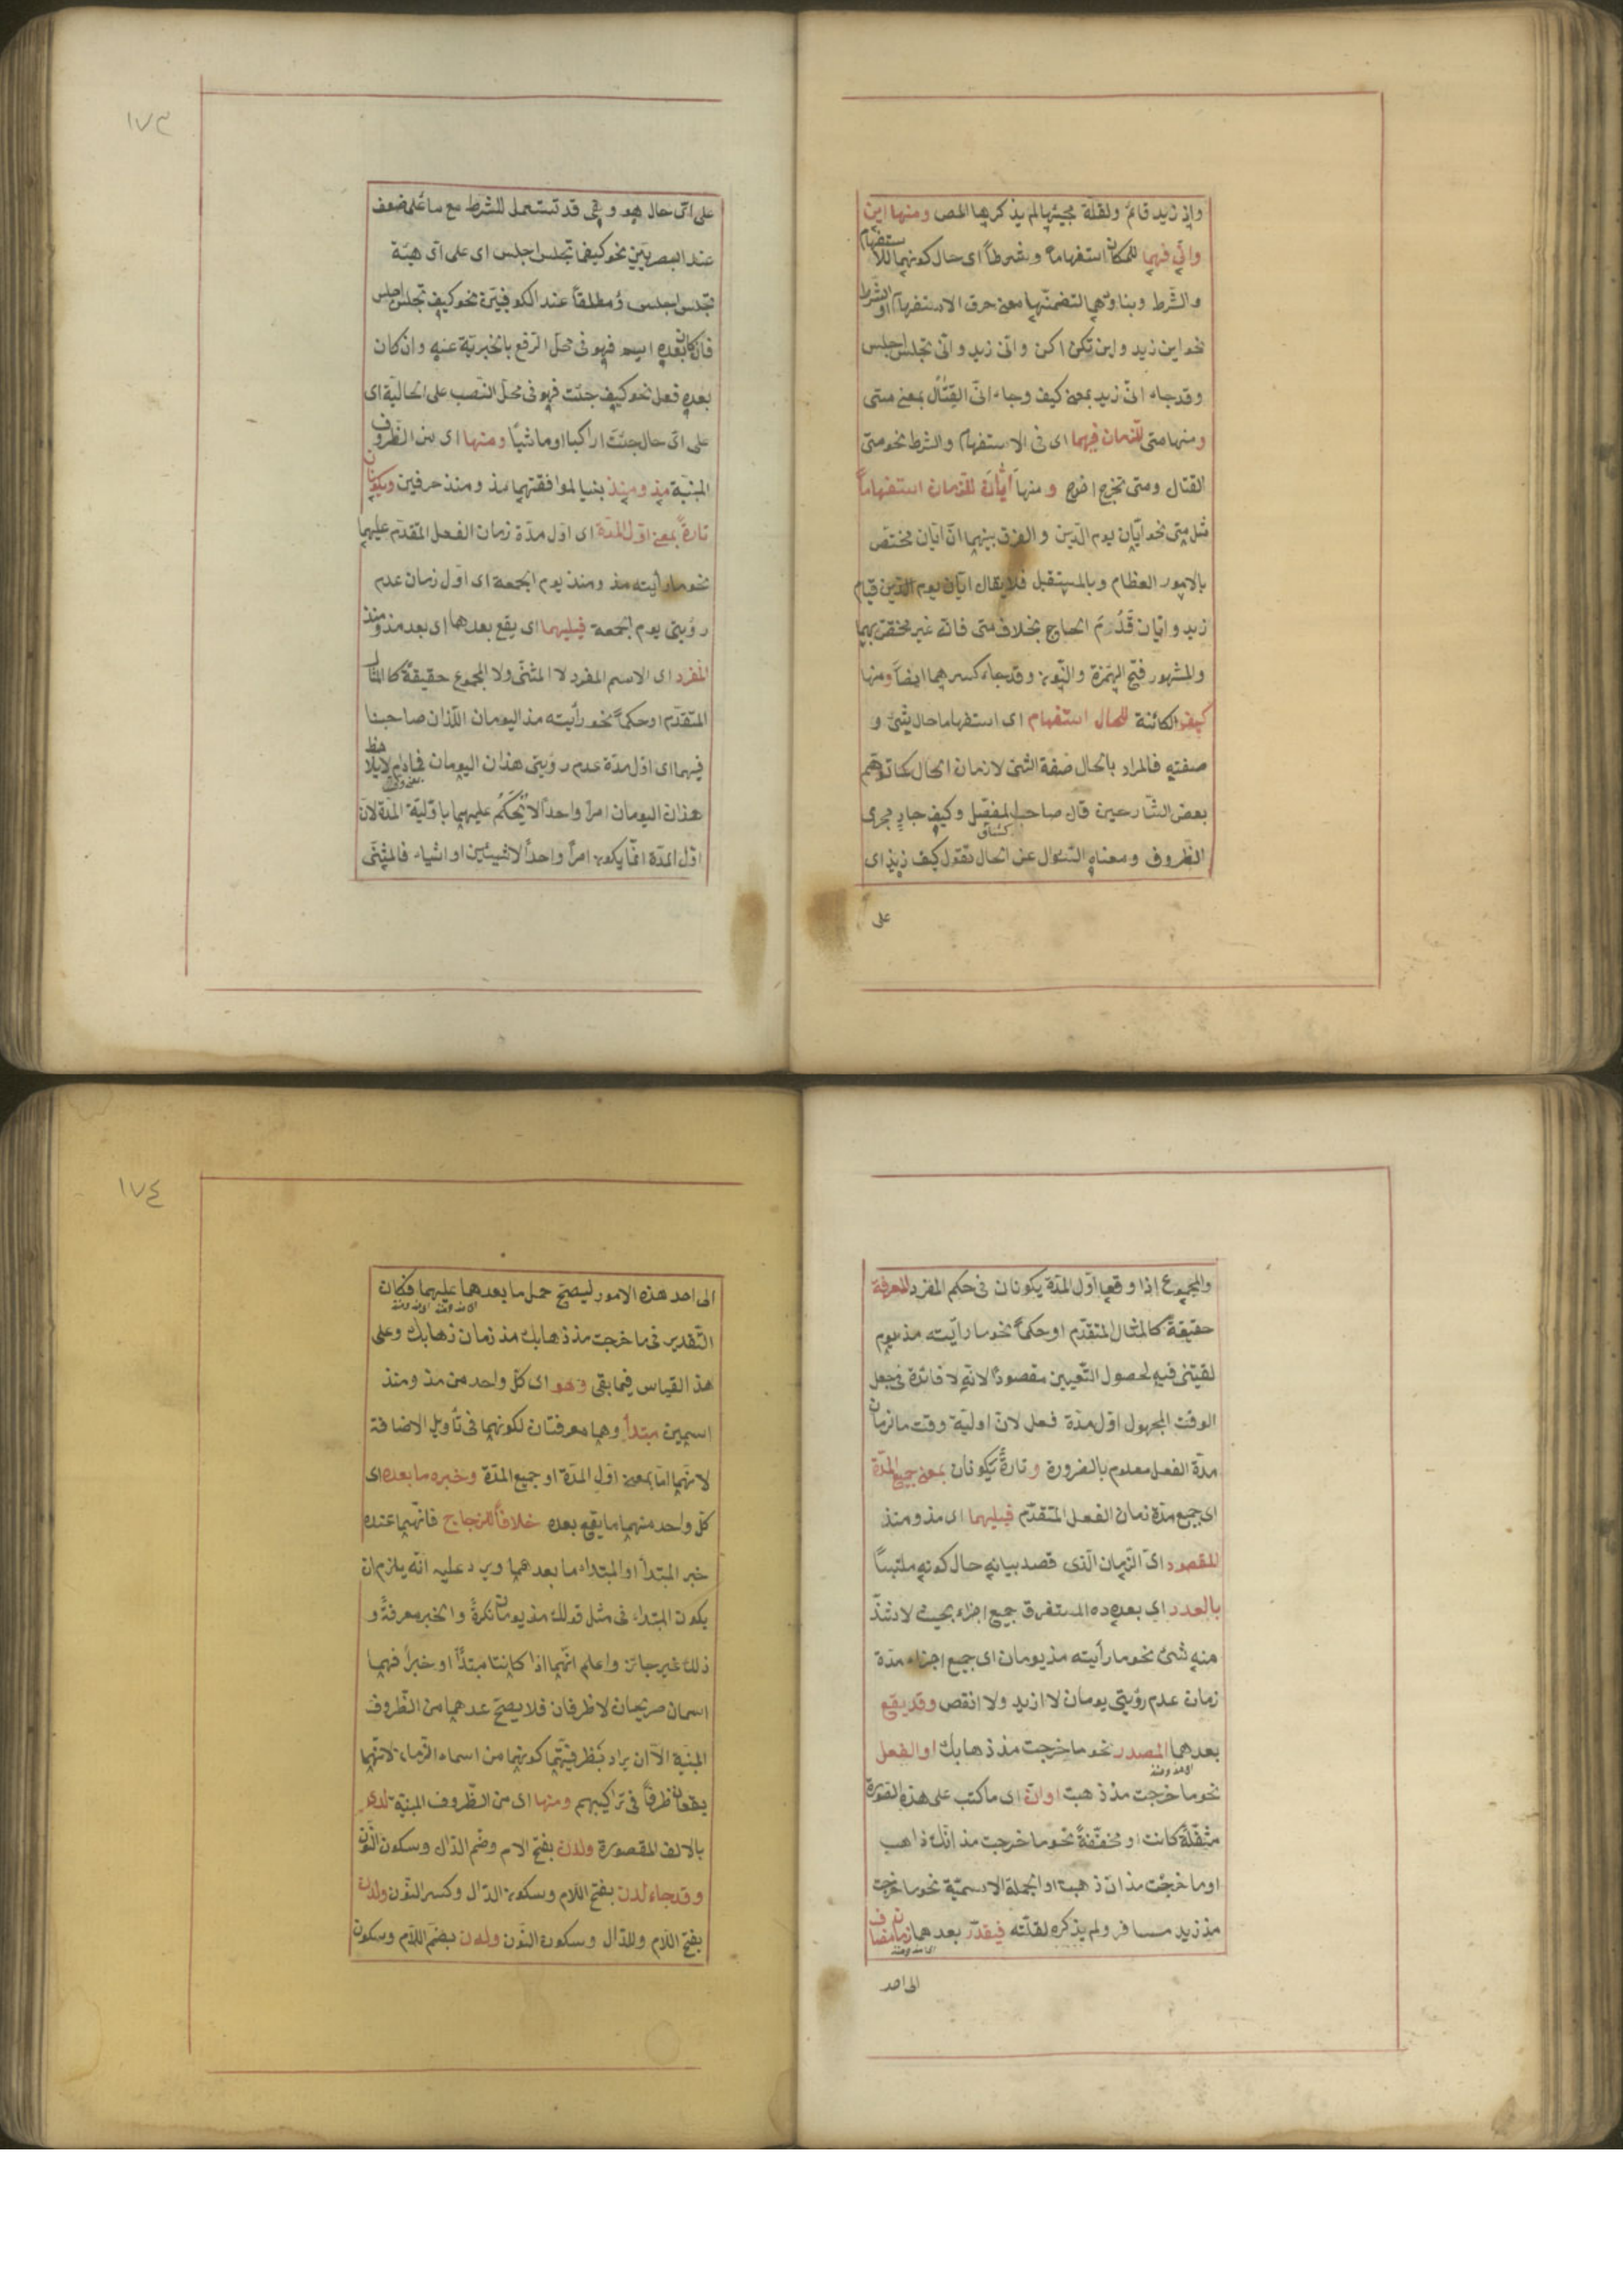 واذ زيد قائم ولقلة مجيئها لم يذكرها المص ومنها اين
وانّى فهما للمكان استفهاماً وشرطاً اى حال كونهما للاستفهام
والشرط وبناؤهما لتضمنهما معنى حرف الاستفهام او الشرط
نحو اين زيد واين تكن اكن وانّى زيد وانّى تجلس اجلس
وقد جاء انّى زيد بمعنى كيف وجاء انّى القتال بمعنى متى
ومنها متى للزمان فيهما اى فى الاستفهام والشرط نحو متى
القتال ومتى تخرج اخرج ومنها ايّان للزمان استفهاماً
مثل متى نحو ايّان يوم الدين والفرق بينهما انّ ايّان مختص
بالامور العظام وبالمستقبل فلا يقال ايّان يوم الدين قيام
زيد وايّان قَدُمَ الحاج بخلاف متى فانه غير مختص بهما
والمشهور فتح الهمزة والنون وقد جاء كسرهما ايضاً ومنها
كيف الكائنة للحال استفهام اى استفهاما حال شئ و
صفته فالمراد بالحال صفة الشئ لا زمان الحال كما توهم
بعض الشارحين قال صاحب المفصّل وكيف جارٍ مجرى
الظروف ومعناه السّؤال عن الحال تقول كيف زيد اى
على
١٧٣
على اىّ حال هو وهى قد تستعمل للشرط مع ما على ضعف
عند البصريّين نحو كيفما تجلس اجلس اى على اى هيئة
تجلس اجلس ومطلقاً عند الكوفيّين نحو كيف تجلس اجلس
فان كان بعده اسم فهو فى محلّ الرفع بالخبرية عنه وان كان
بعده فعل نحو كيف جئت فهو فى محلّ النصب على الحاليّة اى
على اىّ حال جئت اراكبا او ماشياً ومنها اى من الظروف
المبنية مذ ومنذ بنيا لموافقتهما مذ ومنذ حرفين ويكونان
تارةً بمعنى اوّل المدّة اى اوّل مدّة زمان الفعل المتقدّم عليهما
نحو ما رأيته مذ ومنذ يوم الجمعة اى اوّل زمان عدم
رؤيتى يوم الجمعة فيليهما اى يقع بعدهما اى بعد مذ ومنذ
المفرد اى الاسم المفرد لا المثنّى ولا المجموع حقيقةً كالمثال
المتقدّم او حكماً نحو ما رأيته مذ اليومان اللذان صاحبنا
فيهما اى اوّل مدّة عدم رؤيتى هذان اليومان فما دام لا يلاحظ
هذان اليومان امراً واحداً لا يُحكَمُ عليهما باوّليّة المدّة لانّ
اوّل المدّة انّما يكون امراً واحداً لا شيئين او اشياء فالمثنّى
والمجموع اذا وقعا اوّل المدّة يكونان فى حكم المفرد المعرفة
حقيقةً كالمثال المتقدّم او حكماً نحو ما رأيته مذ يوم
لقيتنى فيه لحصول التّعيين مقصوداً لانه لا فائدة فى جعل
الوقت المجهول اوّل مدّة فعل لانّ اولية وقت ما لزمان
مدّة الفعل معلوم بالضرورة وتارةً يكونان بمعنى جميع المدّة
اى جميع مدّة زمان الفعل المتقدّم فيليهما اى مذ ومنذ
المقصود اى الزمان الّذى قصد بيانه حال كونه ملتبساً
بالعدد اى بعدده المستغرق جميع اجزائه بحيث لا يشذّ
منه شئ نحو ما رأيته مذ يومان اى جميع اجزاء مدّة
زمان عدم رؤيتى يومان لا ازيد ولا انقص وقد يقع
بعدهما المصدر نحو ما خرجت مذ ذهابك او الفعل
نحو ما خرجت مذ ذهبت او انّ اى ما كتب على هذه الصّورة
مثقّلةً كانت او مخفّفةً نحو ما خرجت مذ انّك ذاهب
او ما خرجت مذ ان ذهبت او الجملة الاسميّة نحو ما خرجت
مذ زيد مسافر ولم يذكره لقلّته فيقدّر بعدهما زمان مضاف
الى احد
١٧٤
الى احد هذه الامور ليصحّ حمل ما بعدهما عليهما فكان
التّقدير فى ما خرجت مذ ذهابك مذ زمان ذهابك وعلى
هذ القياس فيما بقى وهو اى كلّ واحد من مذ ومنذ
اسمين مبتدأ وهما معرفتان لكونهما فى تأويل الاضافة
لانهما امّا بمعنى اوّل المدّة او جميع المدّة وخبره ما بعده اى
كلّ واحد منهما ما يقع بعده خلافاً للزجاج فانّهما عنده
خبر المبتدأ او المبتداء ما بعدهما ويرد عليه انّه يلزم ان
يكون المبتداء فى مثل قولك مذ يومان نكرةً والخبر معرفةً و
ذلك غير جائز واعلم انّهما اذا كانتا مبتدأ او خبراً فهما
اسمان صريحان لا ظرفان فلا يصحّ عدهما من الظّروف
المبنية الاّ ان يراد بظرفيّتهما كونهما من اسماء الزّمان لانّهما
يقعان ظرفاً فى تراكيبهم ومنها اى من الظّروف المبنيّة لدى
بالالف المقصورة ولدن بفتح الام وضم الدّال وسكون النّون
وقد جاء لدن بفتح اللام وسكون الدّال وكسر النّون ولدن
بفتح اللام والدّال وسكون النّون ولدن بضمّ اللام وسكون